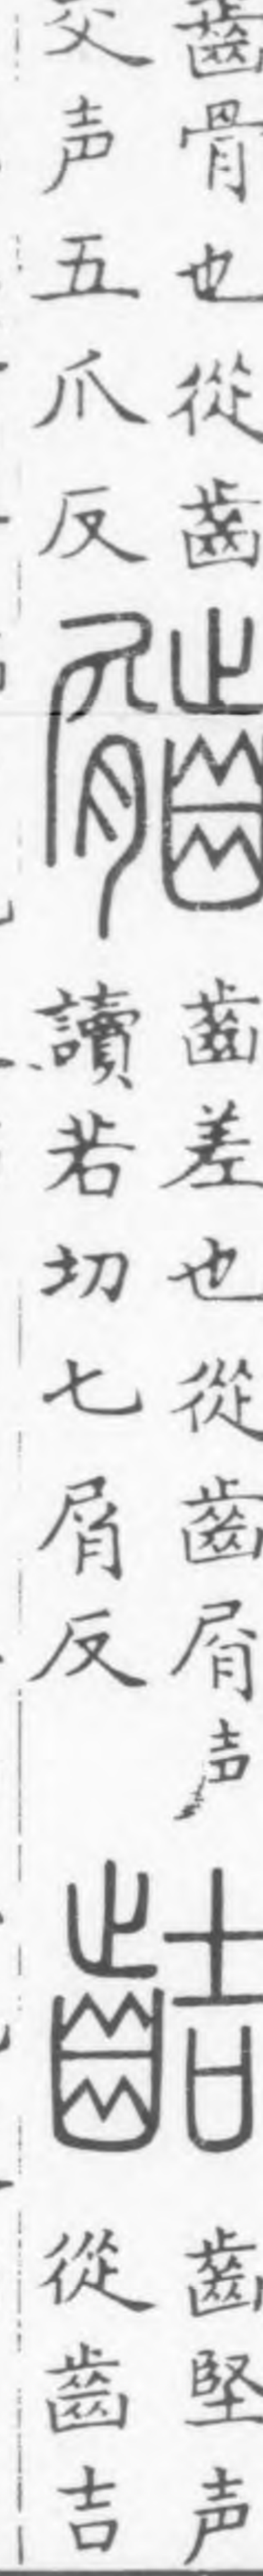 齒骨也從齒
交声五爪反
齒差也從齒屑声
讀若切七屑反
齒堅声
從齒吉